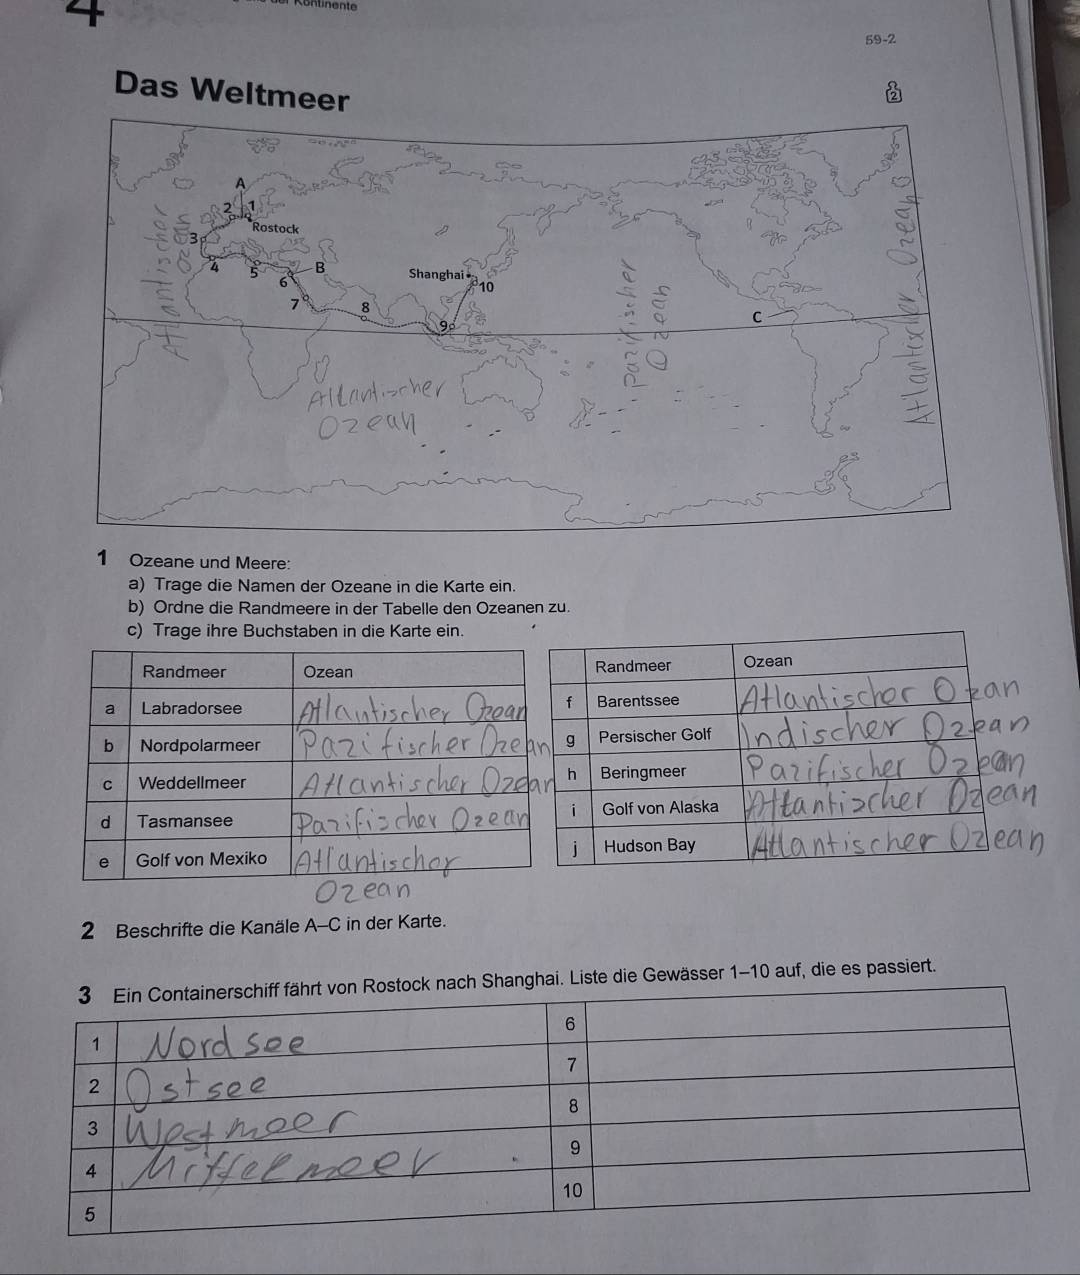 4
der Kontinente
59-2
Das Weltmeer
2
A
2 1
Rostock
3
4 5
B
6
7
8
Shanghai
10
9
C
Atlantischer
Ozean
Atlantischer
Ozean
pazifischer
Ozean
Atlantischer Ozean
1 Ozeane und Meere:
a) Trage die Namen der Ozeane in die Karte ein.
b) Ordne die Randmeere in der Tabelle den Ozeanen zu.
c) Trage ihre Buchstaben in die Karte ein.
Randmeer Ozean
a Labradorsee Atlantischer Ozean
b Nordpolarmeer Pazifischer Ozean
c Weddellmeer Atlantischer Ozean
d Tasmansee Pazifischer Ozean
e Golf von Mexiko Atlantischer
Ozean
Randmeer Ozean
f Barentssee Atlantischer Ozean
g Persischer Golf Indischer Ozean
h Beringmeer Pazifischer Ozean
i Golf von Alaska Attantischer Ozean
j Hudson Bay Atlantischer Ozean
2 Beschrifte die Kanäle A–C in der Karte.
3 Ein Containerschiff fährt von Rostock nach Shanghai. Liste die Gewässer 1–10 auf, die es passiert.
1 Nordsee
2 Ostsee
3 Westmeer
4 Mittelmeer
5
6
7
8
9
10